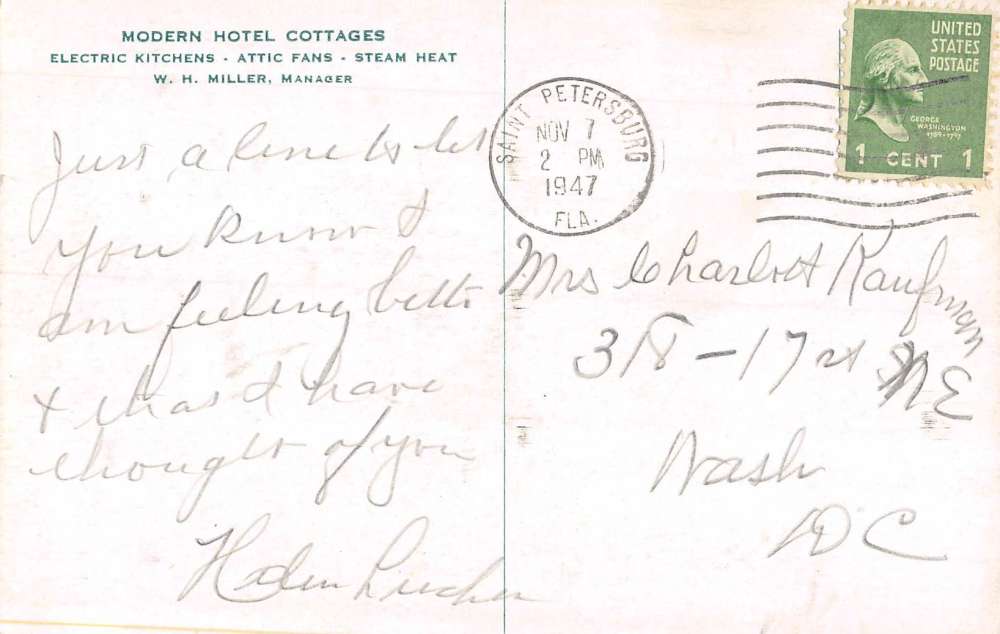 MODERN HOTEL COTTAGES
ELECTRIC KITCHENS - ATTIC FANS - STEAM HEAT
W. H. MILLER, MANAGER
Just a line to let
you know I
am feeling bette
& thas I have
thought of you
Helen
SAINT PETERSBURG
NOV 7
2 PM
1947
FLA.
UNITED
STATES
POSTAGE
GEORGE
WASHINGTON
1789-1797
1 CENT 1
Mrs Charlott Kaufman
318-17 st NE
Wash
DC